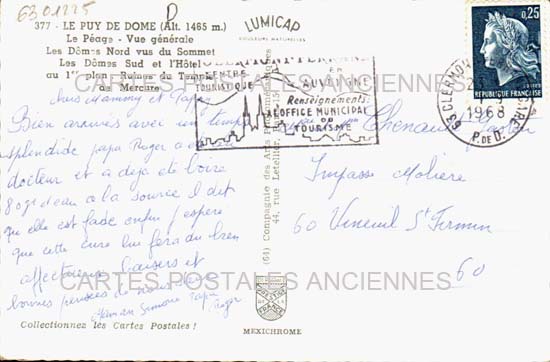 6301225
D
377 - LE PUY DE DOME (Alt. 1465 m.)
Le Péage - Vue générale
Les Dômes Nord vus du Sommet
Les Dômes Sud et l'Hôtel
au 1er plan : Ruines du Temple
de Mercure
LUMICAP
COULEURS NATURELLES
CENTRE
TOURISTIQUE
AUVERGNE
Renseignements:
A L'OFFICE MUNICIPAL
DU
TOURISME
0,25
REPUBLIQUE FRANÇAISE
63 CLERMONT
1968
P. DE D.
Mammy et Papa
Bien arrivés avec un temps
splendide papa Roger a vu le
docteur et a déjà été boire
80 gr d'eau à la source il dit
qu'elle est fade enfin j'espère
que cette cure lui fera du bien
affectueux baisers et
bonnes pensées de nous
Maman Simone papa
Roger
Impasse Molière
60 Vineuil St Firmin
60
(64) Compagnie des Arts
44, rue Letellier, Paris-15
CARTES POSTALES ANCIENNES
CARTES POSTALES ANCIENNES
Collectionnez les Cartes Postales !
MEXICHROME